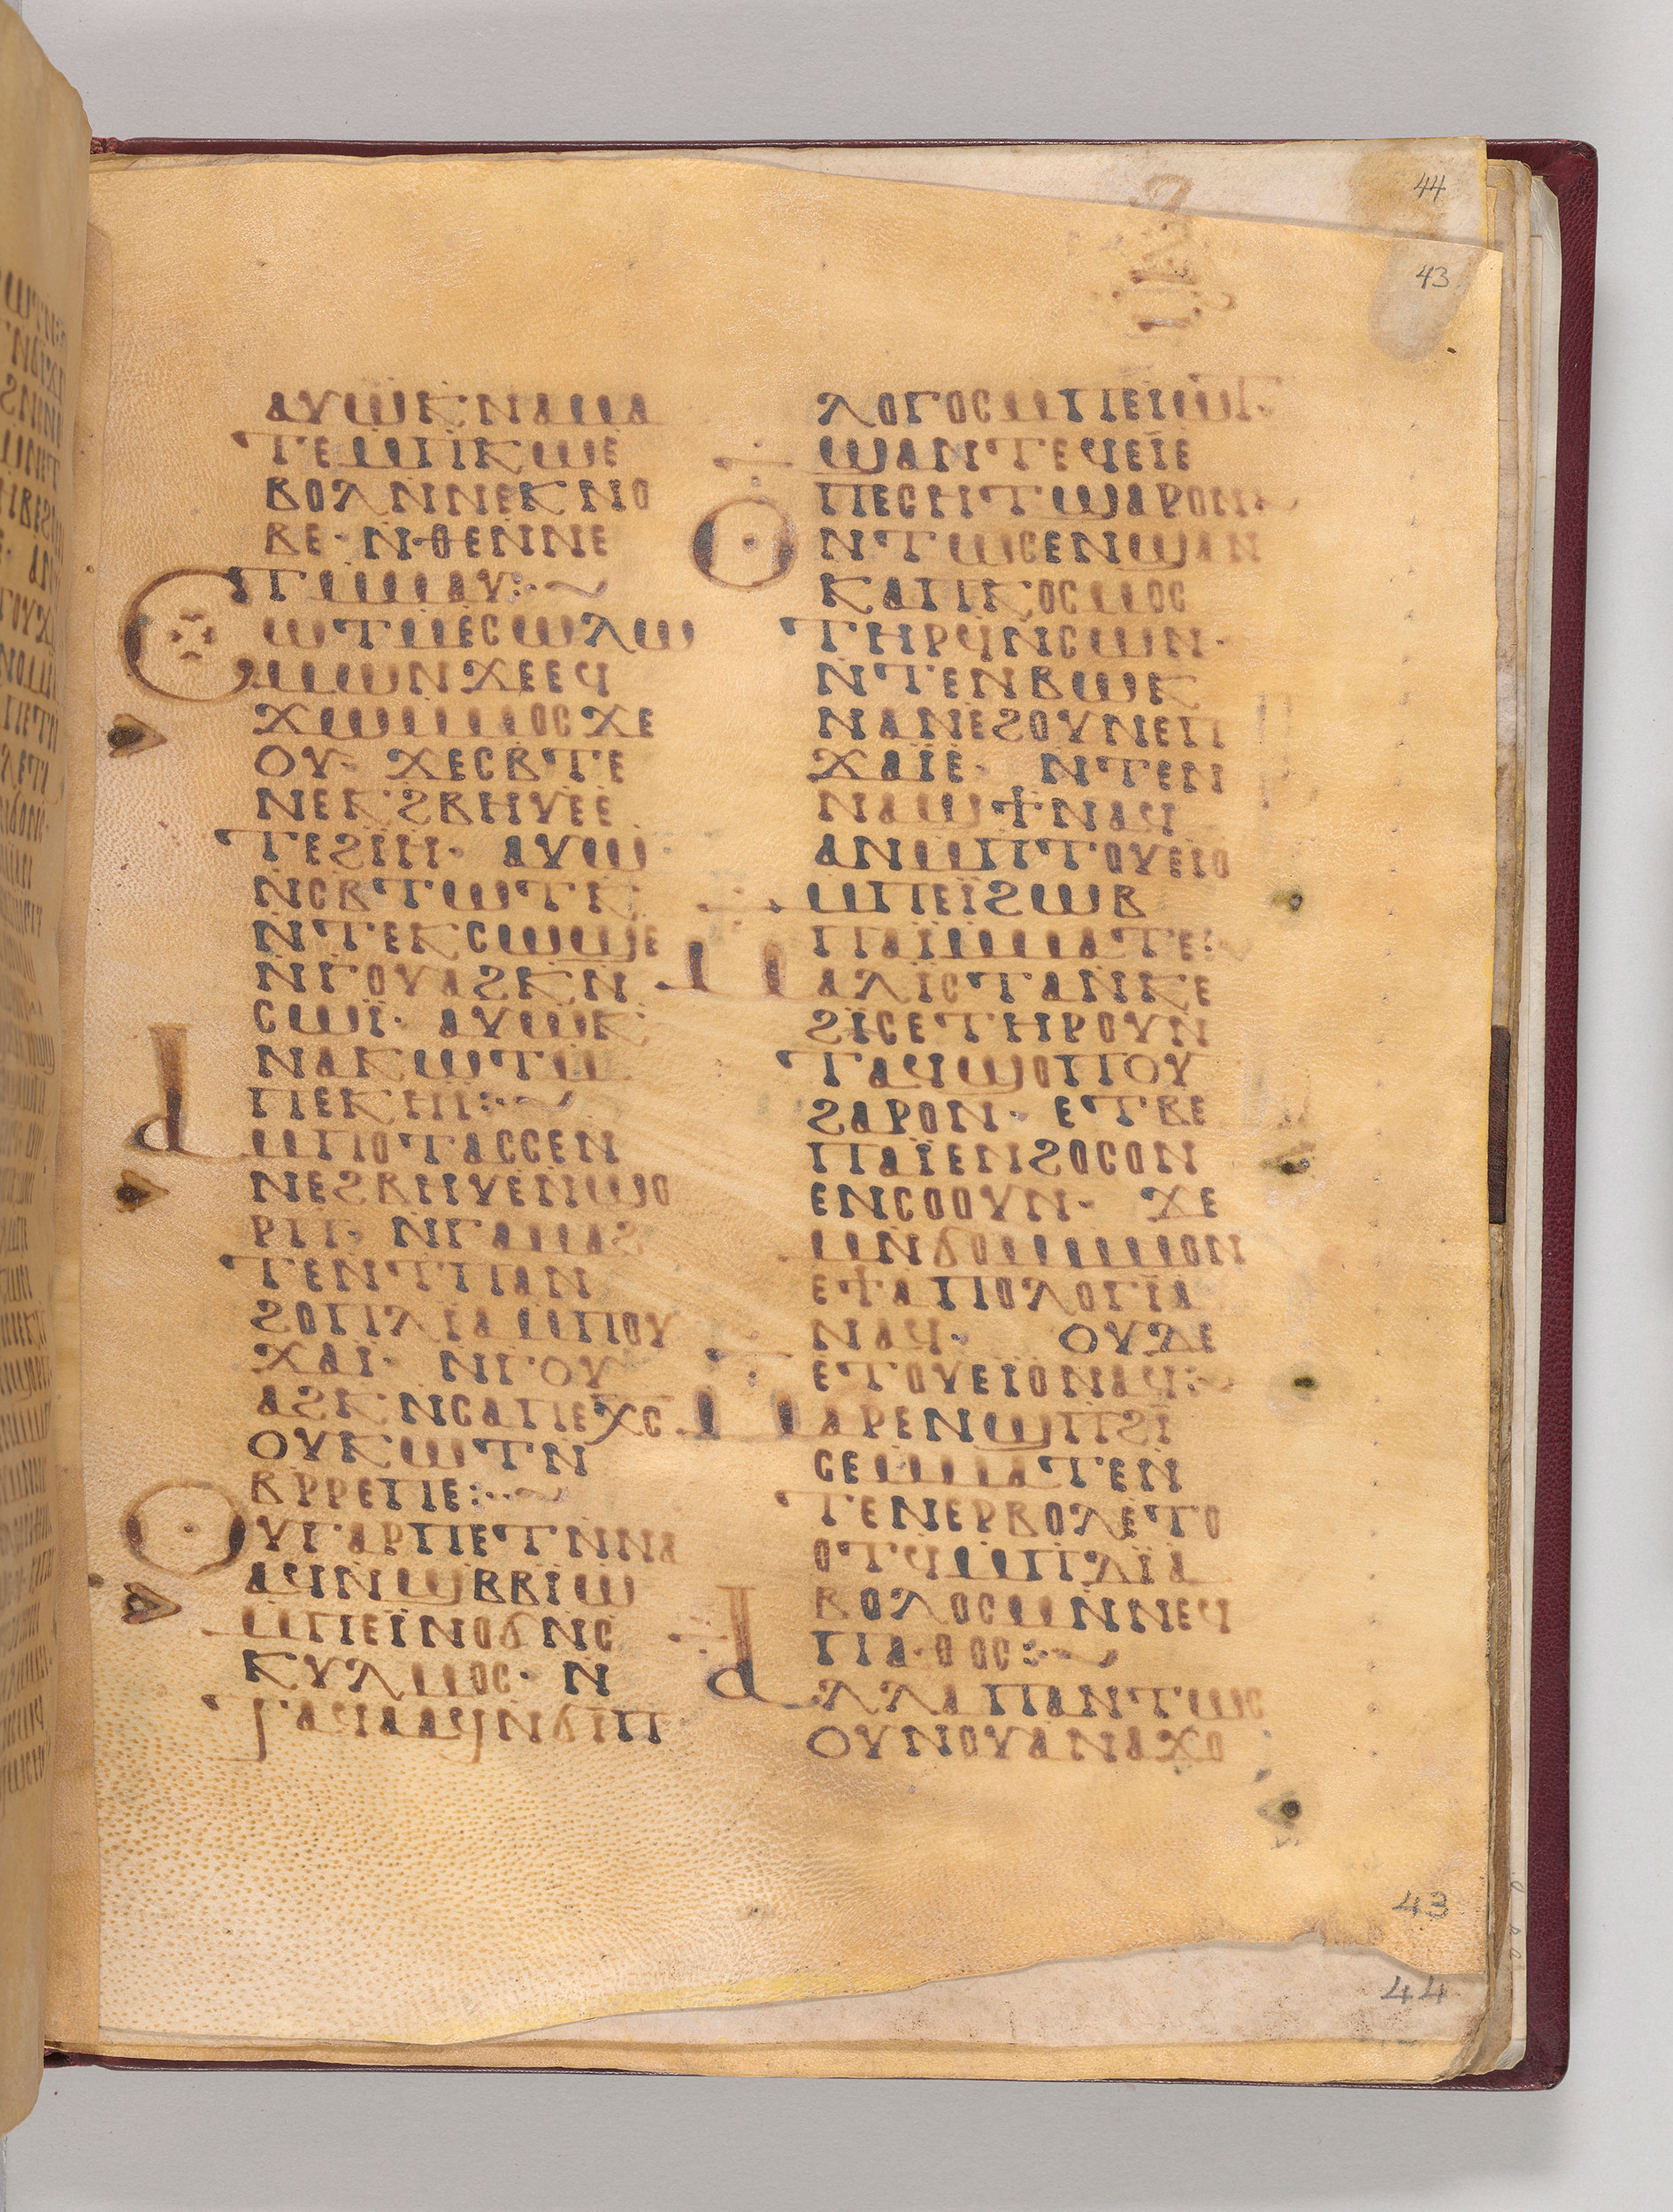 ⲁⲩⲱⲕⲛⲁⲙⲁ
ⲧⲉⲙⲡⲕⲱⲉ
ⲃⲟⲗⲛⲛⲉⲕⲛⲟ
ⲃⲉ· ⲛⲑⲉⲛⲛⲉ
ⲡⲙⲙⲁⲩ:·~
Ⲥⲱⲧⲙⲉⲥⲱⲗⲱ
ⲙⲱⲛϫⲉⲉϥ
ϫⲱⲙⲙⲟⲥϫⲉ
ⲟⲩ· ϫⲉⲥⲃⲧⲉ
ⲛⲉⲕϩⲃⲏⲩⲉⲉ
ⲧⲉϩⲓⲏ· ⲁⲩⲱ
ⲛⲥⲃⲧⲱⲧⲕ
ⲛⲧⲉⲕⲥⲱϣⲉ
ⲛⲅⲟⲩⲁϩⲕⲛ
ⲥⲱⲓ̈· ⲁⲩⲱⲕ
ⲛⲁⲕⲱⲧⲙ
ⲡⲉⲕⲏⲓ:·~
Ⲁⲙⲡⲟⲧⲁⲥⲥⲉⲛ
ⲛⲉϩⲃⲏⲩⲉⲛϣⲟ
ⲣⲡ· ⲛⲅⲁⲙⲁϩ
ⲧⲉⲛⲧⲡⲁⲛ
ϩⲟⲡⲗⲓⲁⲙⲡⲟⲩ
ϫⲁⲓ· ⲛⲅⲟⲩ
ⲁϩⲕⲛⲥⲁⲡⲉⲭ̅ⲥ̅
ⲟⲩⲕⲱⲧⲛ
ⲃⲣⲣⲉⲡⲉ:·~
Ⲟⲩⲅⲁⲣⲡⲉⲧⲛⲛⲁ
ⲁϥⲛϣⲃⲃⲓ̈ⲱ
ⲙⲡⲉⲓ̈ⲛⲟϭⲛⲥ
ⲕⲩⲗⲙⲟⲥ· ⲛ
ⲧⲁϥⲁⲁϥⲛϭⲓⲡ
ⲗⲟⲅⲟⲥⲙⲡⲉⲓⲱⲧ·
ϣⲁⲛⲧⲉϥⲉⲓ̈ⲉ
ⲡⲉⲥⲏⲧϣⲁⲣⲟⲛ:
Ⲟⲛⲧⲱⲥⲉⲛϣⲁⲛ
ⲕⲁⲡⲕⲟⲥⲙⲟⲥ
ⲧⲏⲣϥⲛⲥⲱⲛ·
ⲛⲧⲉⲛⲃⲱⲕ
ⲛⲁⲛⲉϩⲟⲩⲛⲉⲡ
ϫⲁⲓ̈ⲉ· ⲛⲧⲉⲛ
ⲛⲁϣϯⲛⲁϥ
ⲁⲛⲙⲡⲧⲟⲩⲉⲓⲟ
ⲙⲡⲉⲓ̈ϩⲱⲃ
ⲡⲁⲓ̈ⲙⲙⲁⲧⲉ:~
Ⲙⲁⲗⲓ̈ⲥⲧⲁⲛⲕⲉ
ϩⲓⲥⲉⲧⲏⲣⲟⲩⲛ
ⲧⲁϥϣⲟⲡⲟⲩ
ϩⲁⲣⲟⲛ· ⲉⲧⲃⲉ
ⲡⲁⲓ̈ⲉⲛϩⲟⲥⲟⲛ
ⲉⲛⲥⲟⲟⲩⲛ· ϫⲉ
ⲙⲛϭⲟⲙⲙⲙⲟⲛ
ⲉϯⲁⲡⲟⲗⲟⲅⲓ̈ⲁ
ⲛⲁϥ· ⲟⲩⲇⲉ
ⲉⲧⲟⲩⲉⲓ̈ⲟⲛⲁϥ:~
Ⲙⲁⲣⲉⲛϣⲡϩⲓ
ⲥⲉⲙⲙⲁⲧⲉⲛ
ⲧⲉⲛⲉⲣⲃⲟⲗⲉⲧⲟ
ⲟⲧϥⲙⲡⲇⲓ̈ⲁ
ⲃⲟⲗⲟⲥⲙⲛⲛⲉϥ
ⲡⲁⲑⲟⲥ:·~
Ⲁⲗⲗⲁⲡⲁⲛⲧⲱⲥ
ⲟⲩⲛⲟⲩⲁⲛⲁⲭⲟ
44
43
43
44